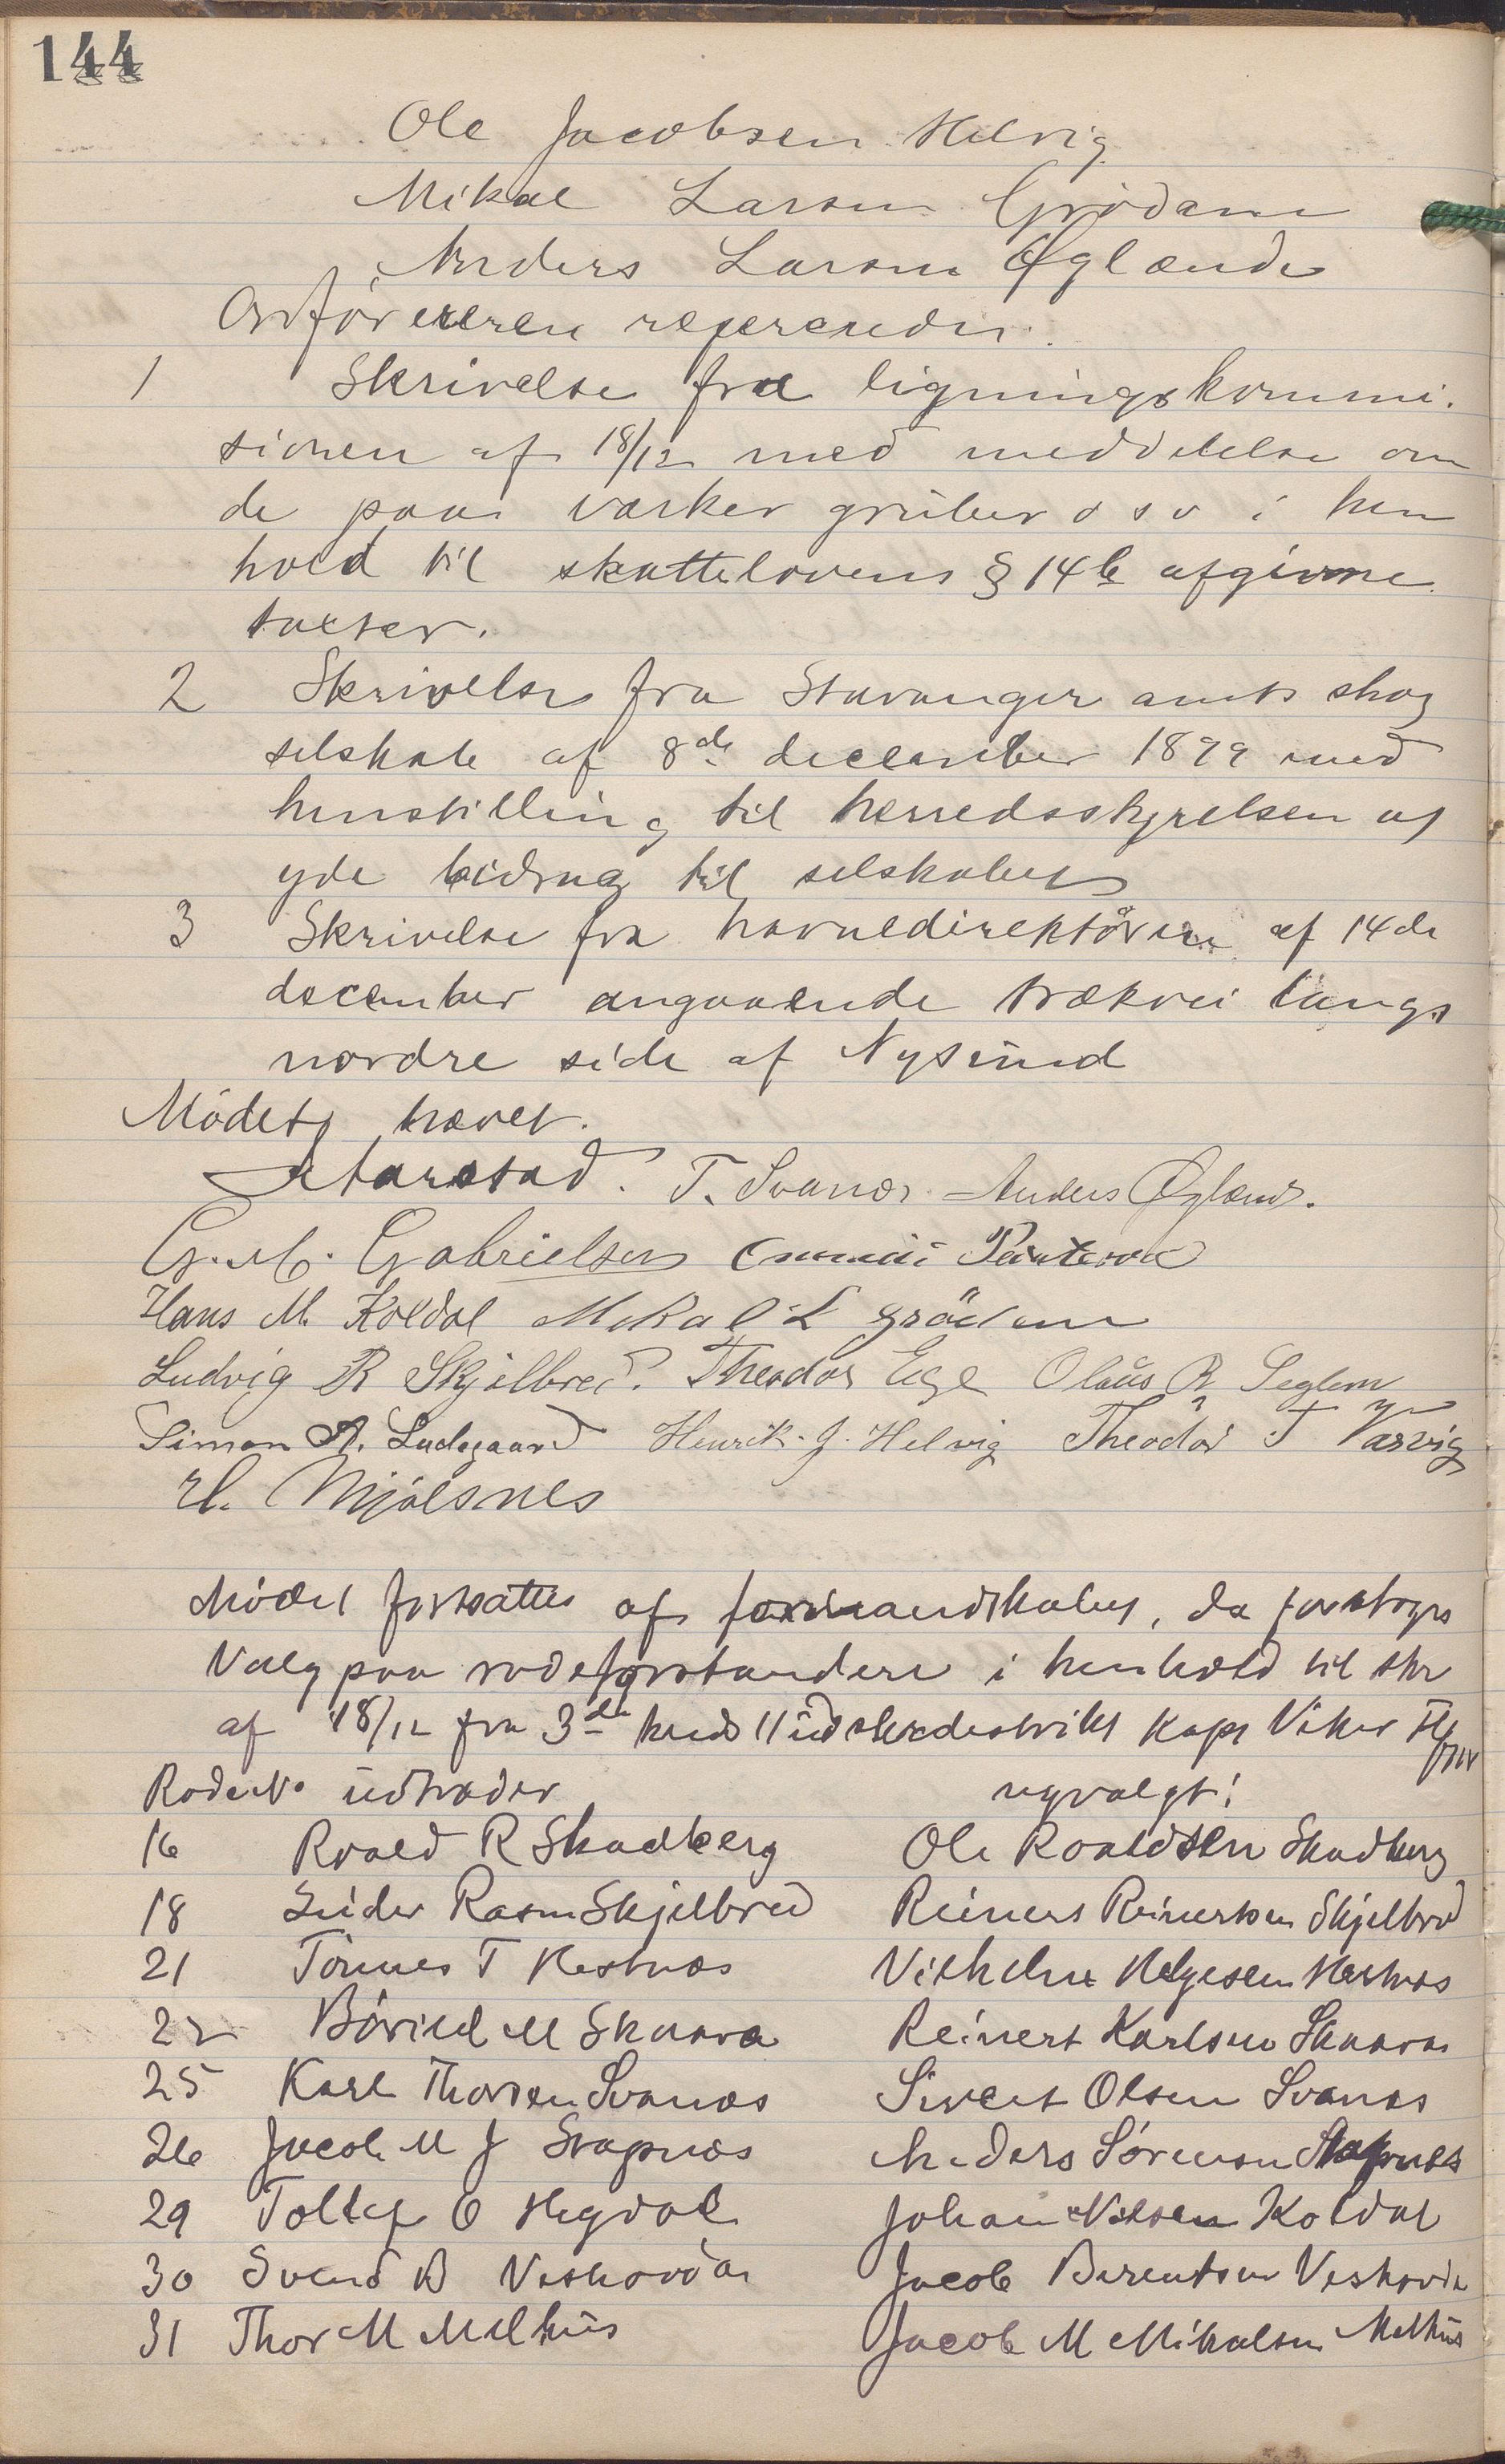 144
Ole Jacobsen Helvig
Mikal Larsen Grødem
Anders Larsen Øglænd
Ordføreren refererede:
1 Skrivelse fra ligningskommi-
sionen af 18/12 med meddelelse om
de paa værker gruber o s v i hen
hold til skattelovens § 14 b afgivne
takster.
2 Skrivelse fra Stavanger amts skog
selskab af 8de december 1899 med
henstilling til herredsstyrelsen at
yde bidrag til selskabet
3 Skrivelse fra havnedirektøren af 14de
december angaaende trækvei langs
nordre side af Nysund
Mødet hævet.
Aarstad. T. Svanes Anders Øglænd.
G. M. Gabrielsen Emanuel Puntervold
Hans M. Koldal Mikal L Grødem
Ludvig R Skjelbred. Theodor Ege Olaus R Seglem
Simon A. Ludegaard Henrik J. Helvig Theodor T Varvig
H. Mjølsnes
Mødet fortsattes af formandskabet, da foretoges
Valg paa rodeforstandere i henhold til skr
af 18/12 fra 3de kreds udskrdestrikt Kapt Viker
Rode No udtræder nyvalgt:
16 Roald R Skadberg Ole Roaldsen Skadberg
18 Rasm Skjelbred Reinert Reinertsen Skjelbred
21 Tønnes T Hestnæs Vilhelm Helgesen Hestnæs
22 Børild M Skaara Reinert Karlsen Skaara
25 Karl Thorsen Svanæs Sivert Olsen Svanæs
26 Jacob M J Stapnæs Anders Sørensen Stapnes
29 Tollef O Hegdal Johan Nilsen Koldal
30 Svend B Veshovda Jacob Berentsen Veshovda
31 Thor M Melhus Jacob M Mikalsen Melhus